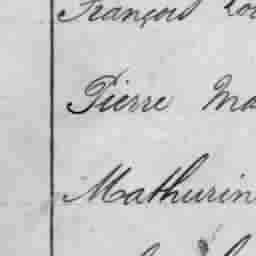 François
Pierre Ma
Mathurin